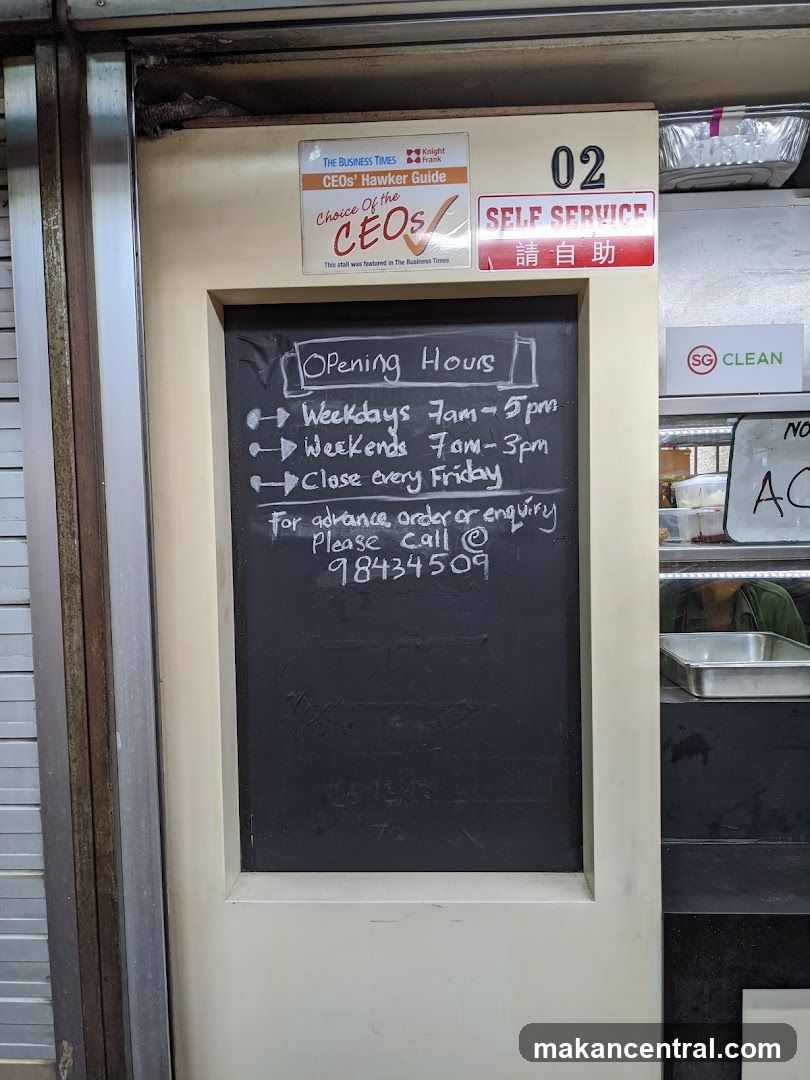 02
THE BUSINESS TIMES Knight Frank
CEOs' Hawker Guide
Choice Of the
CEOs
This stall was featured in The Business Times
SELF SERVICE
請自助
Opening Hours
Weekdays 7am - 5pm
Weekends 7am - 3pm
Close every Friday
For advance order or enquiry
Please call @
98434509
SG CLEAN
makancentral.com